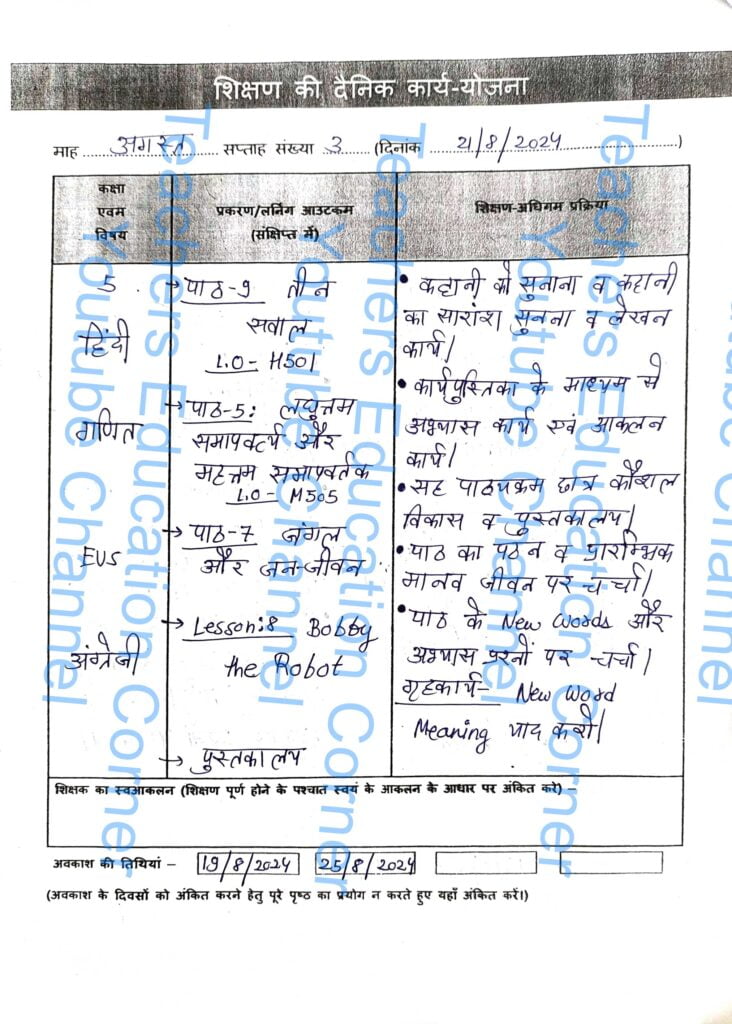 शिक्षण की दैनिक कार्य-योजना
माह अगस्त सप्ताह संख्या 3 (दिनांक 21/8/2024)
कक्षा
एवम
विषय
प्रकरण/लर्निंग आउटकम
(संक्षिप्त में)
शिक्षण-अधिगम प्रक्रिया
5
हिंदी
→ पाठ-9 तीन
सवाल
L.O- H501
गणित
→ पाठ-5: लघुत्तम
समापवर्त्य और
महत्तम समापवर्तक
L.O- M505
EVS
→ पाठ-7 जंगल
और जन-जीवन
अंग्रेजी
→ Lesson:8 Bobby
the Robot
→ पुस्तकालय
• कहानी को सुनाना व कहानी
का सारांश सुनना व लेखन
कार्य।
• कार्यपुस्तिका के माध्यम से
अभ्यास कार्य एवं आकलन
कार्य।
• सह पाठ्यक्रम छात्र कौशल
विकास व पुस्तकालय।
• पाठ का पठन व प्रारम्भिक
मानव जीवन पर चर्चा।
• पाठ के New Words और
अभ्यास प्रश्नों पर चर्चा।
गृहकार्य- New Word
Meaning याद करो।
शिक्षक का स्वआकलन (शिक्षण पूर्ण होने के पश्चात स्वयं के आकलन के आधार पर अंकित करे) –
अवकाश की तिथियां – 19/8/2024 25/8/2024
(अवकाश के दिवसों को अंकित करने हेतु पूरे पृष्ठ का प्रयोग न करते हुए यहाँ अंकित करें।)
Teachers Education Corner
Youtube Channel
Teachers Education Corner
Youtube Channel
Teachers Education Corner
Youtube Channel